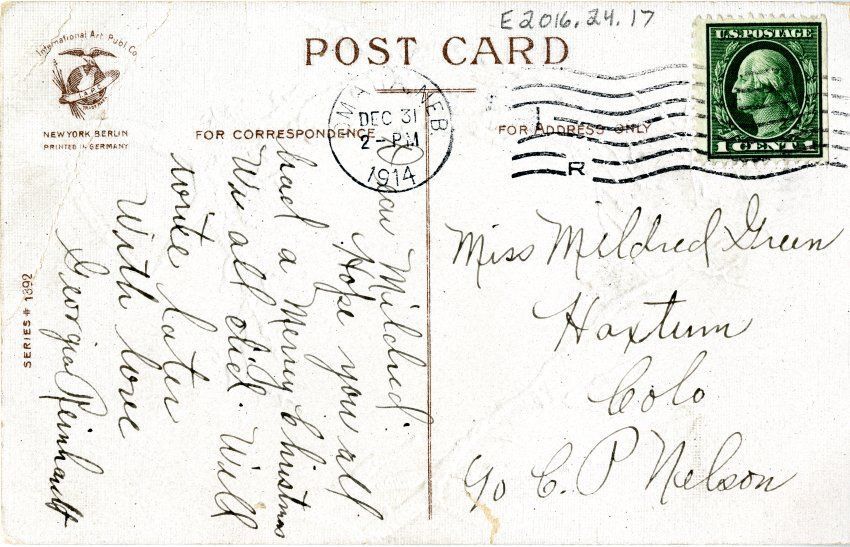 E2016.24.17
International Art Publ. Co.
NEW YORK BERLIN
PRINTED IN GERMANY
POST CARD
FOR CORRESPONDENCE
FOR ADDRESS ONLY
NEB
DEC 31
2-PM
1914
R
U.S. POSTAGE
1 CENT 1
Dear Mildred.
Hope you all
had a Merry Christmas
We all did. Will
write later
With love
Georgia Reinhault
Miss Mildred Green
Haxtum
Colo
c/o C. P Nelson
SERIES # 1892